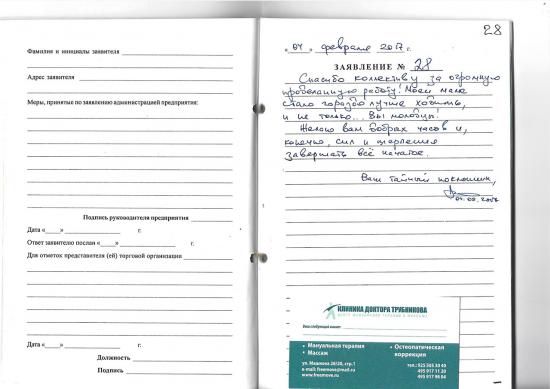 Фамилия и инициалы заявителя
Адрес заявителя
Меры, принятые по заявлению администрацией предприятия:
Подпись руководителя предприятия
Дата «___» г.
Ответ заявителю послан «___» г.
Для отметок представителя (ей) торговой организации
Дата «___» г.
Должность
Подпись
28
«04» февраля 2017 г.
ЗАЯВЛЕНИЕ № 28
Спасибо коллективу за огромную
проделанную работу! Моей маме
стало гораздо лучше ходить,
и не только... Вы молодцы!
Желаю вам добрых часов и,
конечно, сил и терпения
завершать всё начатое.
Ваш тайный поклонник,
КЛИНИКА ДОКТОРА ТРУБНИКОВА
Ваш следующий визит:
• Мануальная терапия
• Массаж
• Остеопатическая
коррекция
ул. Машкова 28/20, стр.1
e-mail: freemove@mail.ru
www.freemove.ru
тел.: 925 505 30 40
495 917 11 20
495 917 96 04